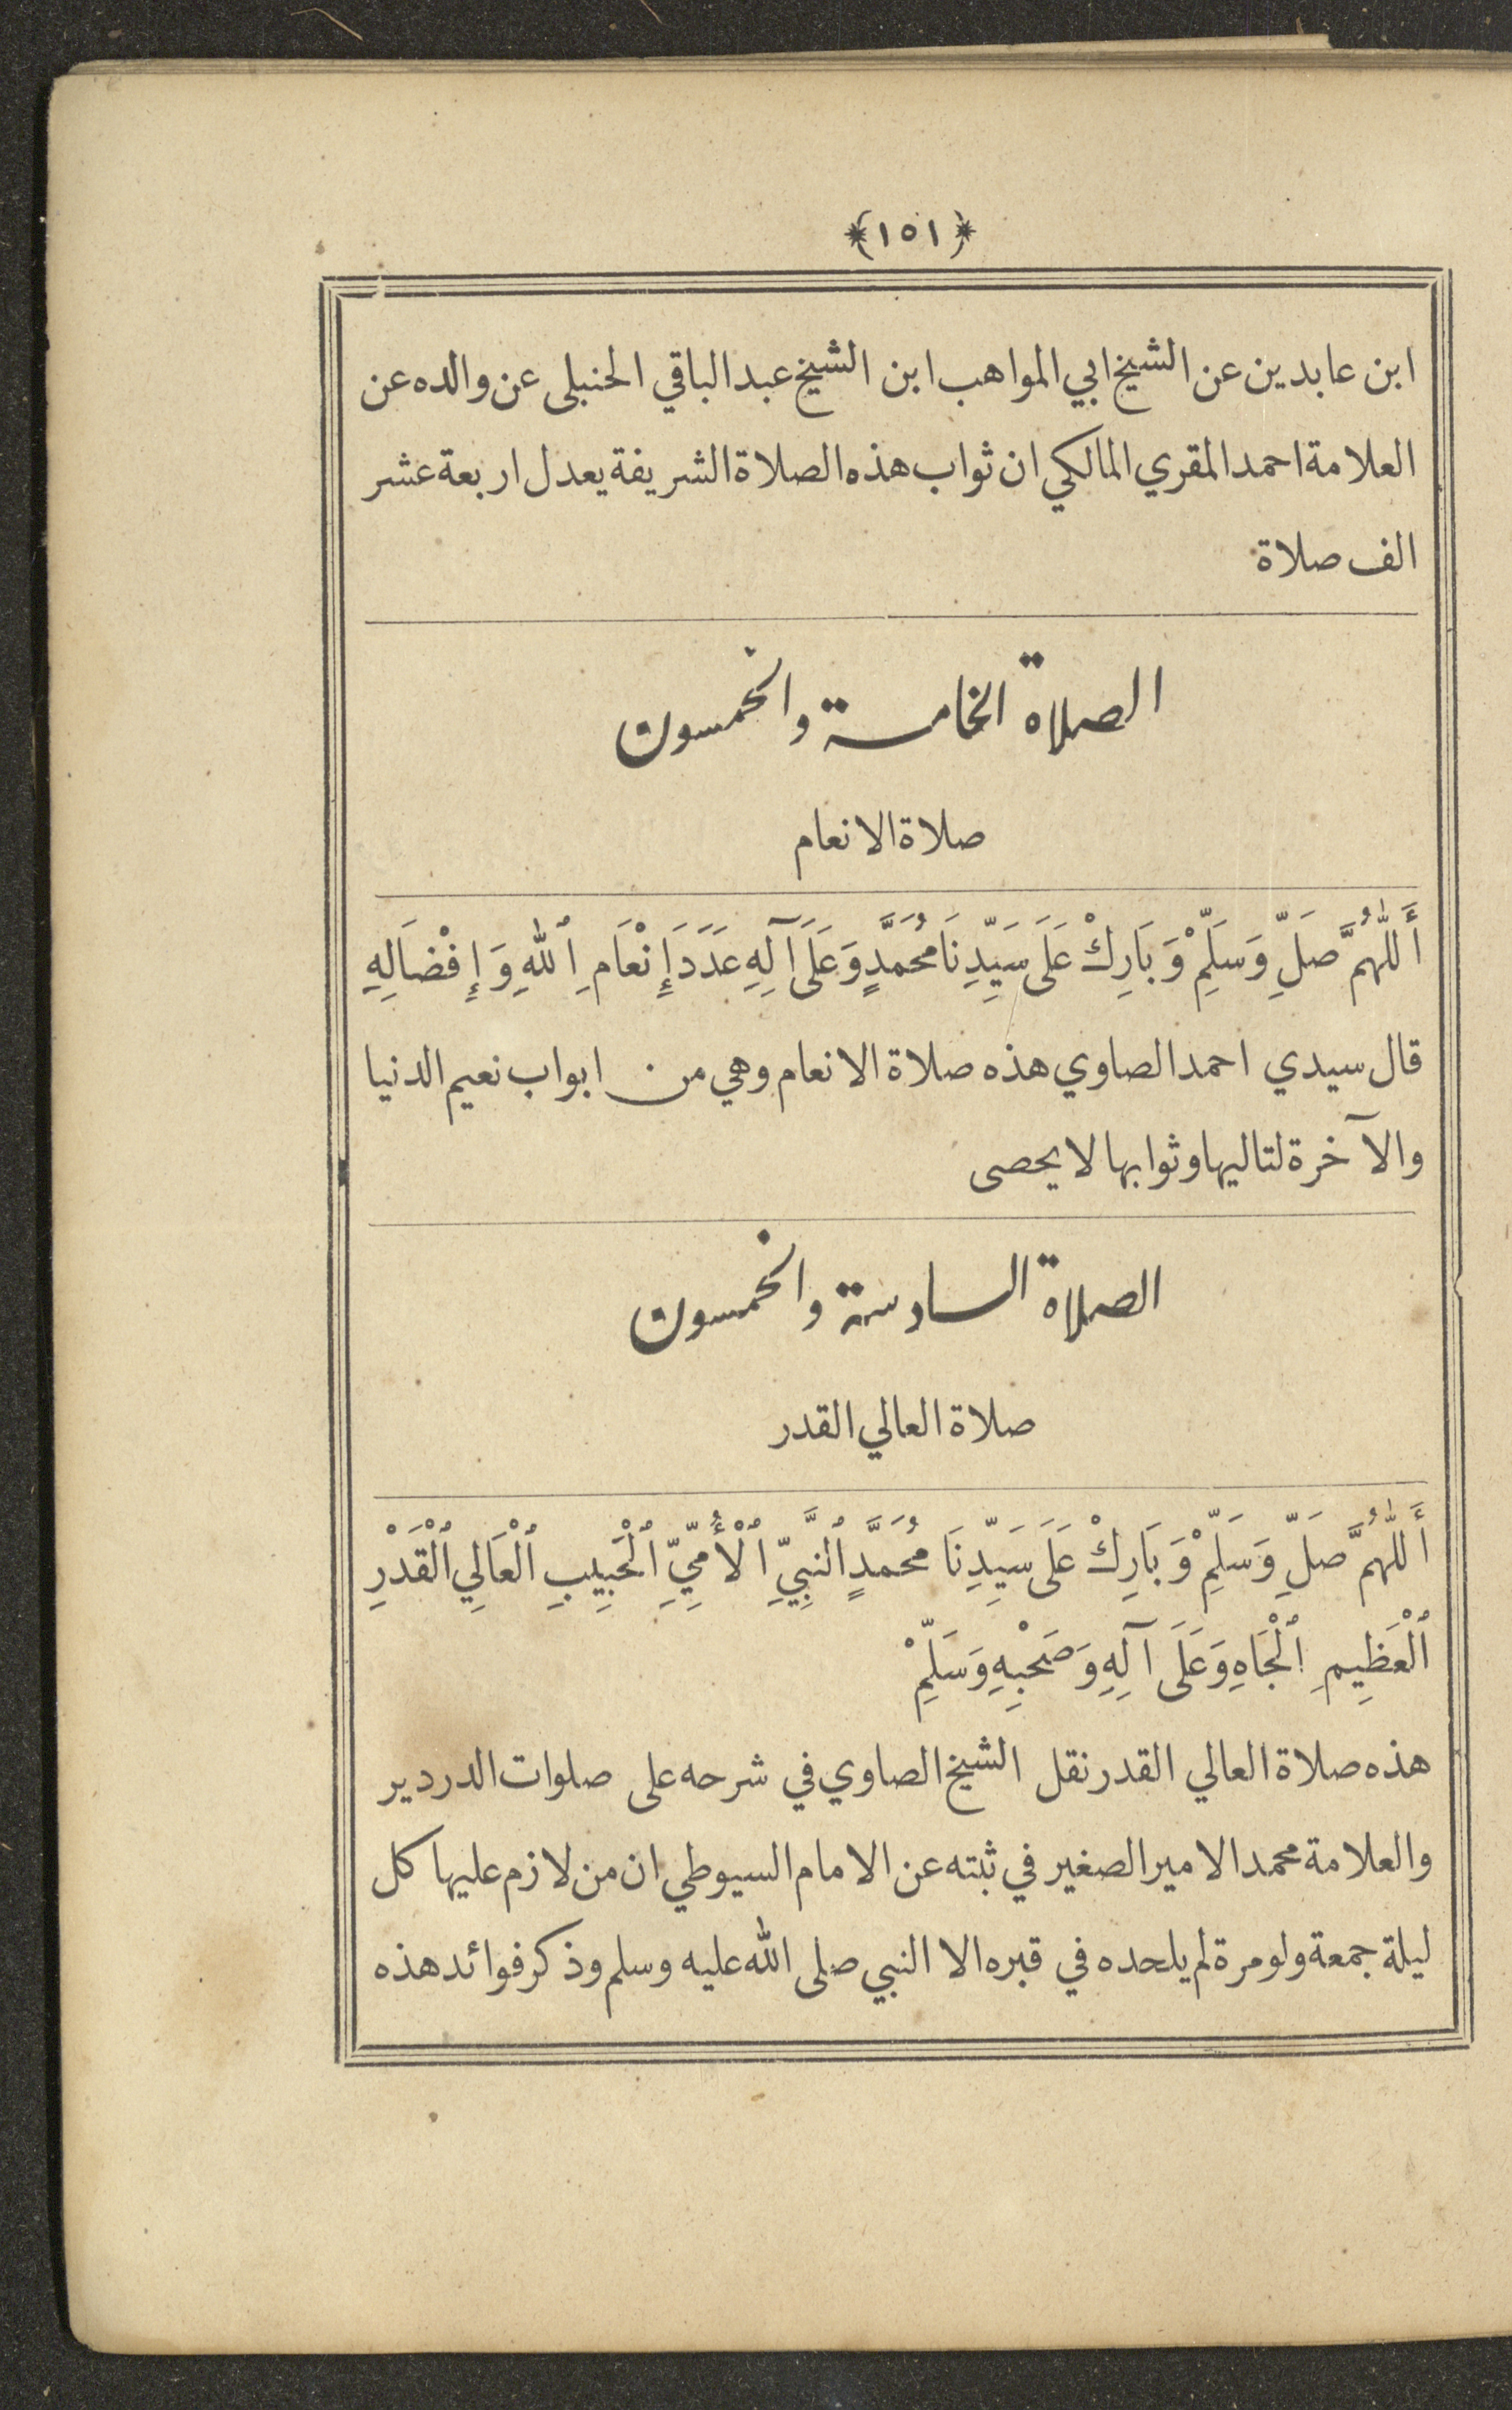 ﴿١٥١﴾
ابن عابدين عن الشيخ ابي المواهب ابن الشيخ عبد الباقي الحنبلى عن والده عن
العلامة احمد المقري المالكي ان ثواب هذه الصلاة الشريفة يعدل اربعة عشر
الف صلاة
الصلاة الخامسة والخمسون
صلاة الانعام
أَللّٰهُمَّ صَلِّ وَسَلِّمْ وَبَارِكْ عَلَى سَيِّدِنَا مُحَمَّدٍ وَعَلَى آلِهِ عَدَدَ إِنْعَامِ ٱللهِ وَإِفْضَالِهِ
قال سيدي احمد الصاوي هذه صلاة الانعام وهي من ابواب نعيم الدنيا
والآخرة لتاليها وثوابها لا يحصى
الصلاة السادسة والخمسون
صلاة العالي القدر
أَللّٰهُمَّ صَلِّ وَسَلِّمْ وَبَارِكْ عَلَى سَيِّدِنَا مُحَمَّدٍ ٱلنَّبِيِّ ٱلْأُمِّيِّ ٱلْحَبِيبِ ٱلْعَالِي ٱلْقَدْرِ
ٱلْعَظِيمِ ٱلْجَاهِ وَعَلَى آلِهِ وَصَحْبِهِ وَسَلِّمْ
هذه صلاة العالي القدر نقل الشيخ الصاوي في شرحه على صلوات الدردير
والعلامة محمد الامير الصغير في ثبته عن الامام السيوطي ان من لازم عليها كل
ليلة جمعة ولو مرة لم يلحده في قبره الا النبي صلى الله عليه وسلم وذكر فوائد هذه